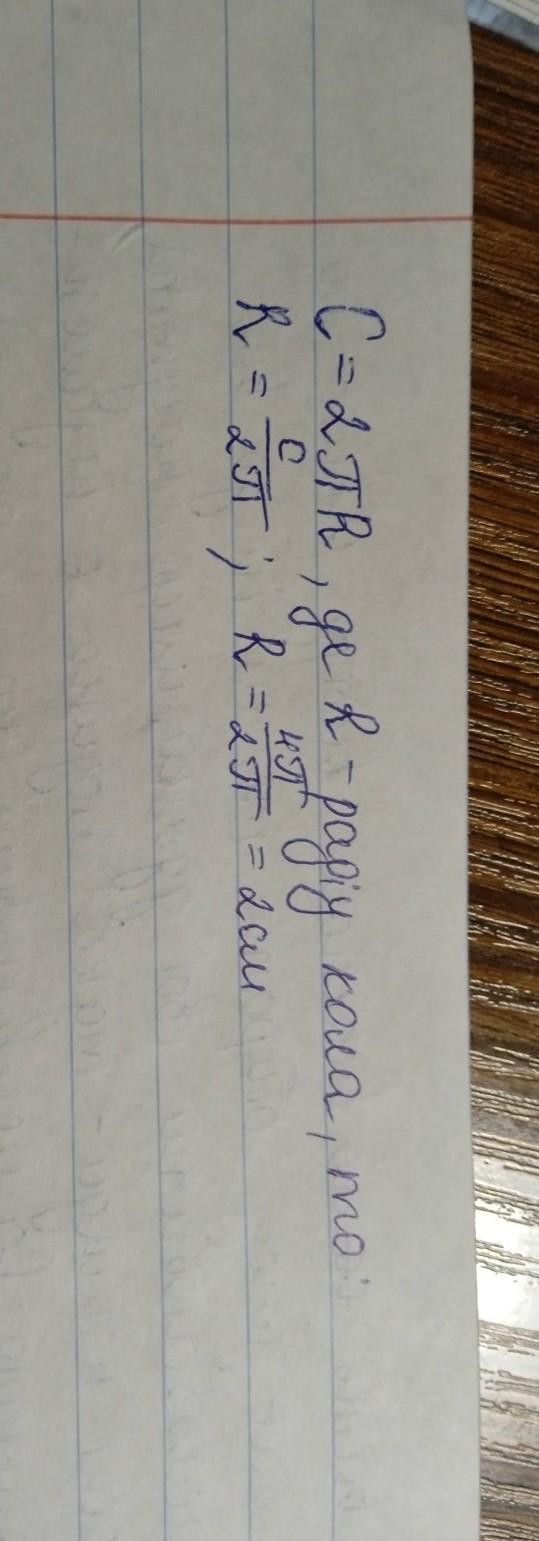 C = 2πR, де R - радіу кола, то:
R = C/2π; R = 4π/2π = 2см